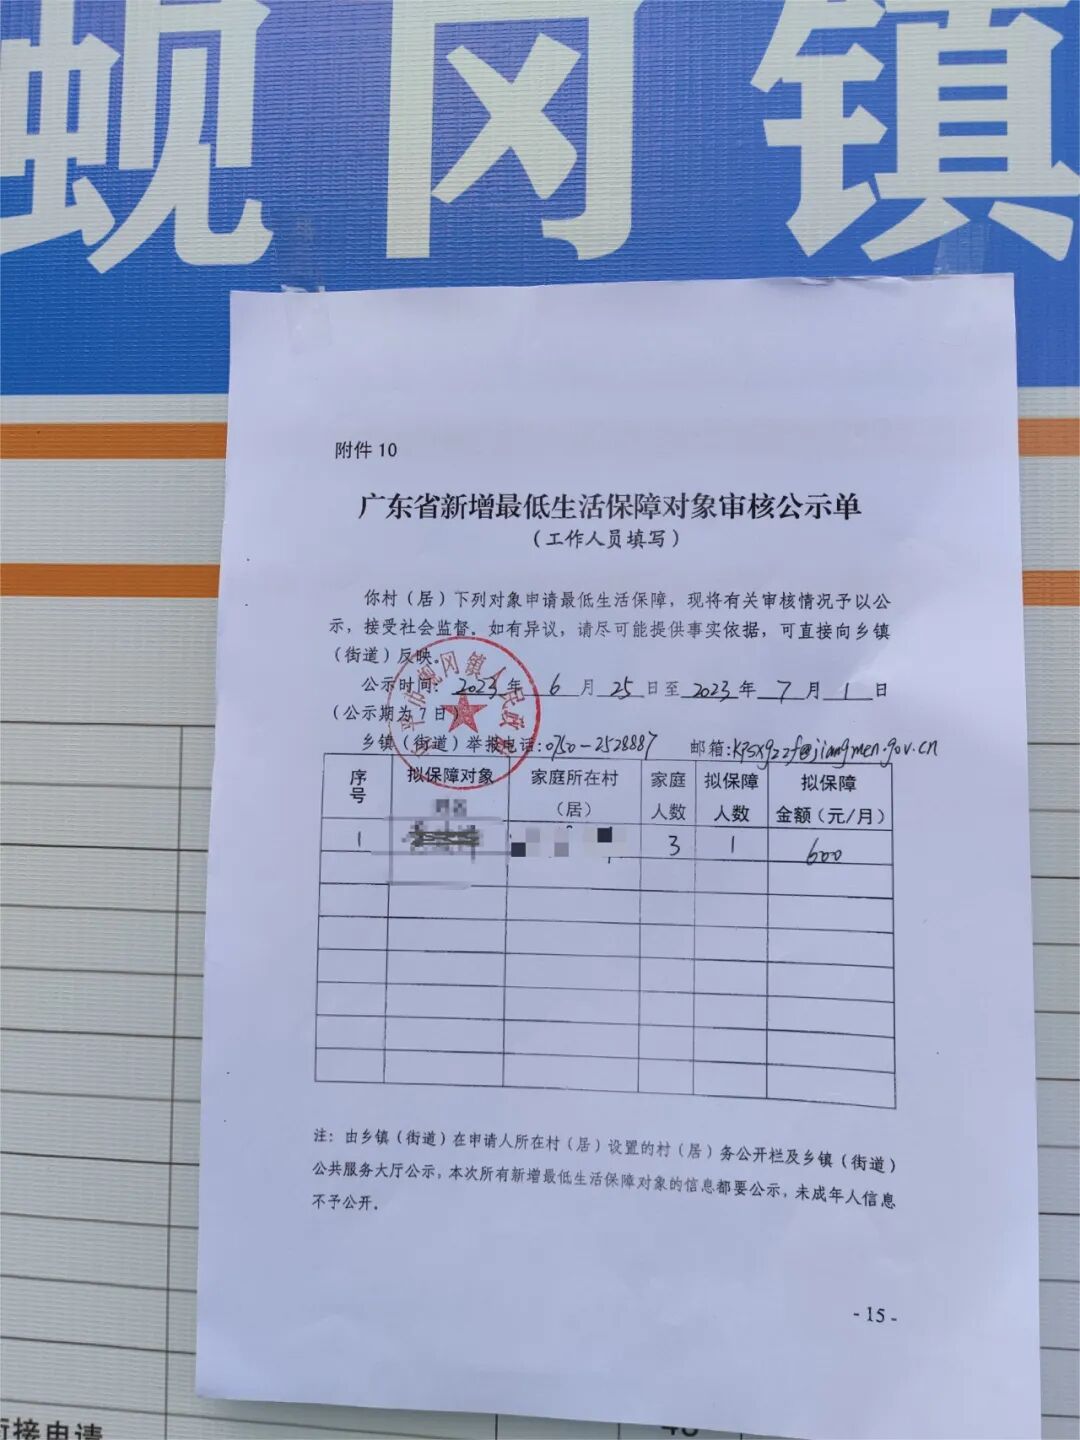 蚬冈镇
附件 10
广东省新增最低生活保障对象审核公示单
（工作人员填写）
你村（居）下列对象申请最低生活保障，现将有关审核情况予以公
示，接受社会监督。如有异议，请尽可能提供事实依据，可直接向乡镇
（街道）反映。
公示时间：2023 年 6 月 25 日至 2023 年 7 月 1 日
（公示期为 7 日）
乡镇（街道）举报电话:0750-2528887 邮箱:kpsxgzzf@jiangmen.gov.cn
序号 拟保障对象 家庭所在村（居） 家庭人数 拟保障人数 拟保障金额（元/月）
1 3 1 600
注：由乡镇（街道）在申请人所在村（居）设置的村（居）务公开栏及乡镇（街道）
公共服务大厅公示，本次所有新增最低生活保障对象的信息都要公示，未成年人信息
不予公开。
- 15 -
衔接申请